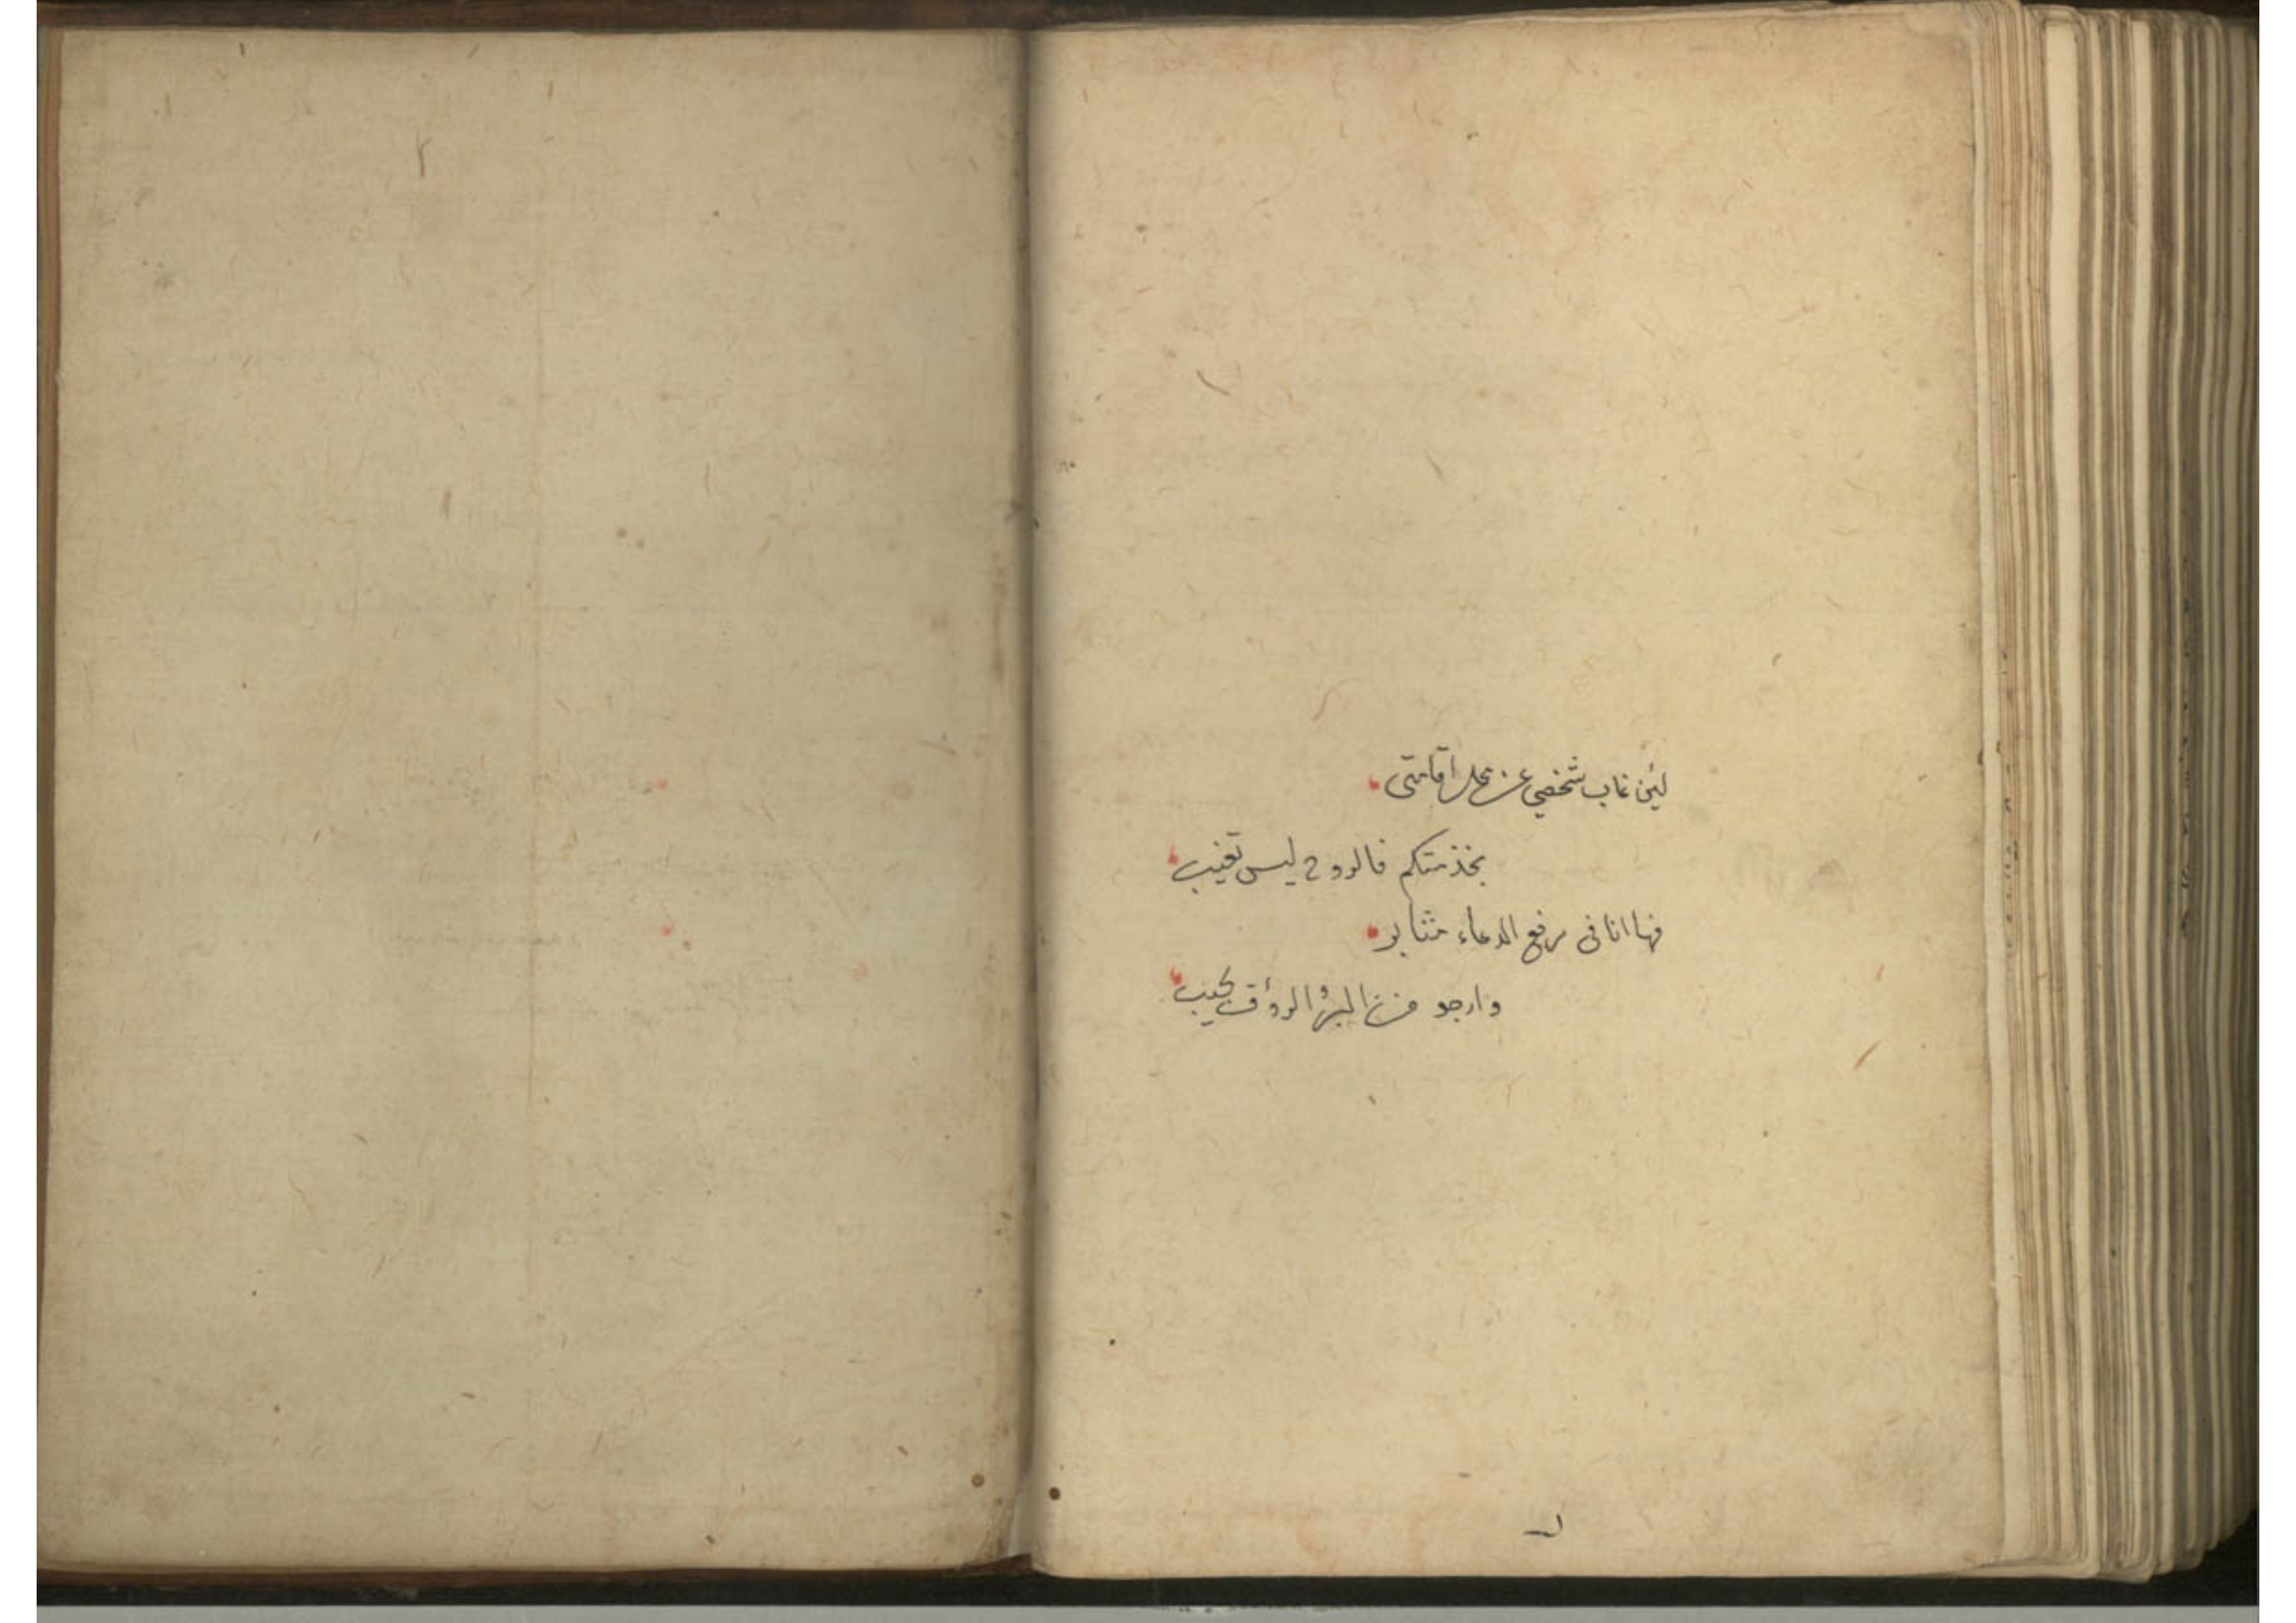 لئن غاب شخصي عن محل اقامتى
بخدمتكم فالروح ليس تغيب
فها انا فى رفع الدعاء مثابر
وارجو من البرّ الرؤف يجيب